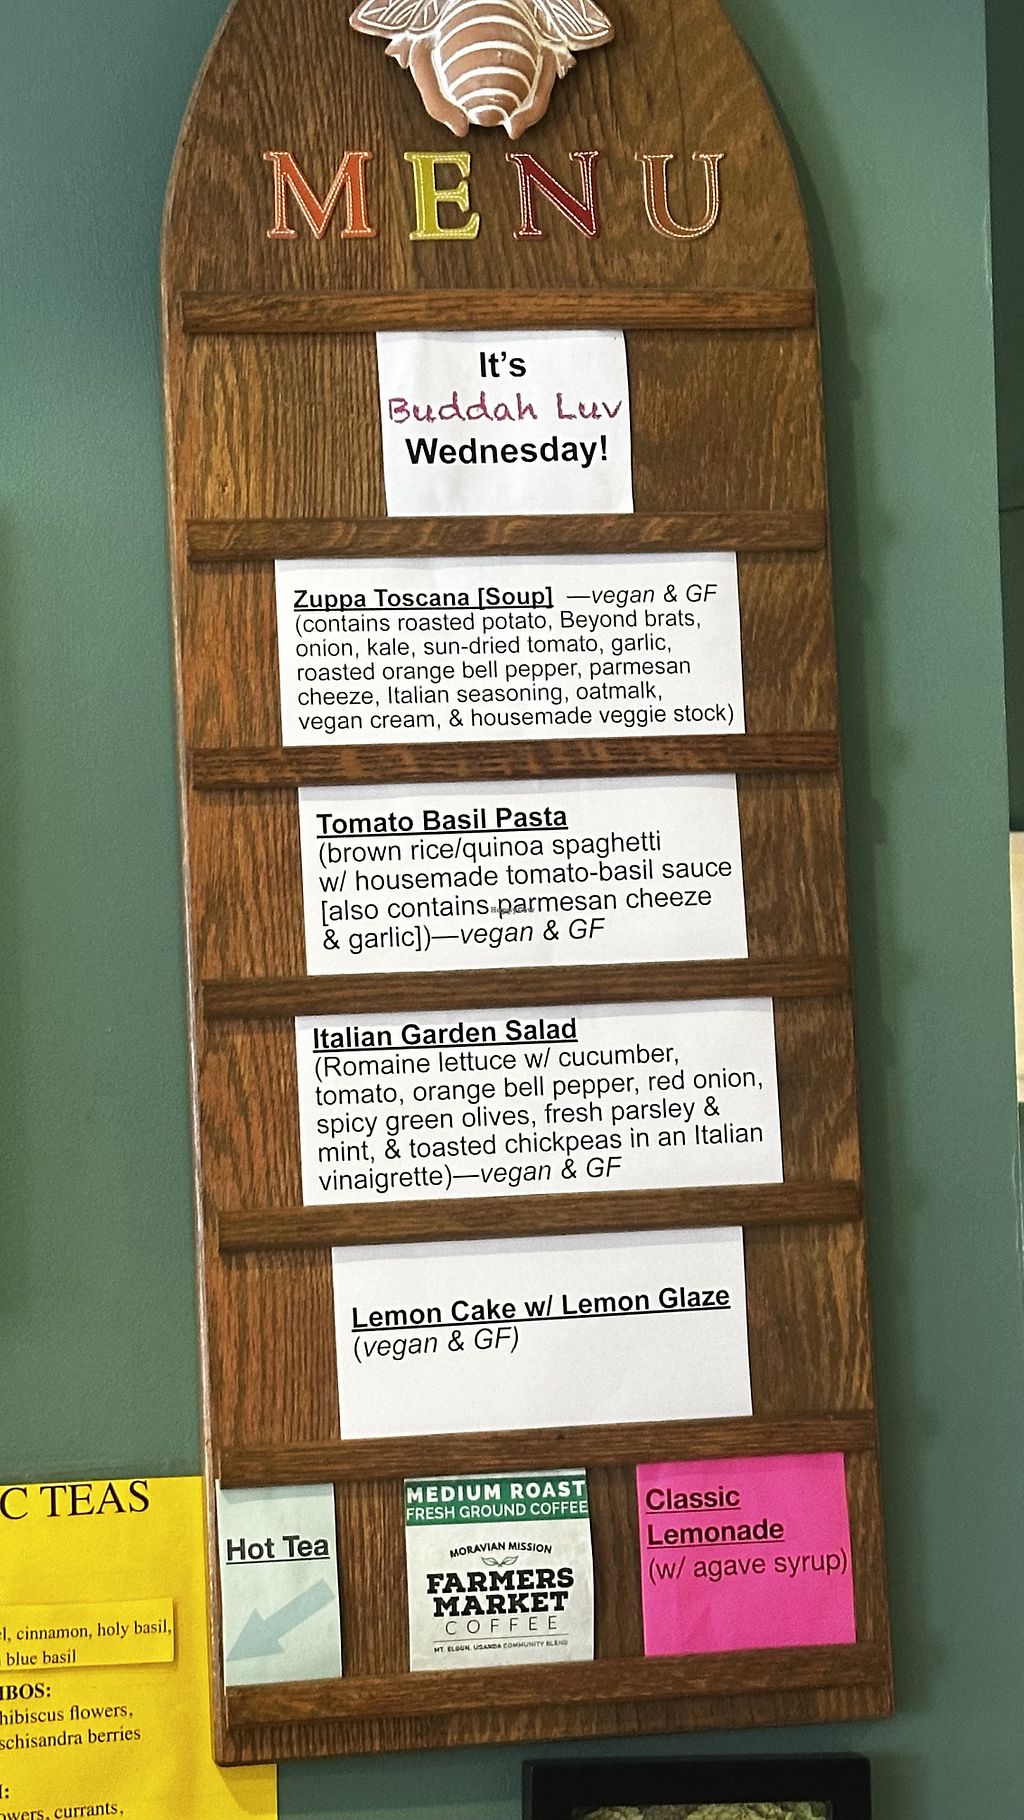 MENU
It's
Buddah Luv
Wednesday!
Zuppa Toscana [Soup] —vegan & GF
(contains roasted potato, Beyond brats,
onion, kale, sun-dried tomato, garlic,
roasted orange bell pepper, parmesan
cheeze, Italian seasoning, oatmalk,
vegan cream, & housemade veggie stock)
Tomato Basil Pasta
(brown rice/quinoa spaghetti
w/ housemade tomato-basil sauce
[also contains parmesan cheeze
& garlic])—vegan & GF
HappyCow
Italian Garden Salad
(Romaine lettuce w/ cucumber,
tomato, orange bell pepper, red onion,
spicy green olives, fresh parsley &
mint, & toasted chickpeas in an Italian
vinaigrette)—vegan & GF
Lemon Cake w/ Lemon Glaze
(vegan & GF)
Hot Tea
MEDIUM ROAST
FRESH GROUND COFFEE
MORAVIAN MISSION
FARMERS
MARKET
COFFEE
MT. ELGON, UGANDA COMMUNITY BLEND
Classic
Lemonade
(w/ agave syrup)
C TEAS
cinnamon, holy basil,
blue basil
IBOS:
hibiscus flowers,
schisandra berries
currants,